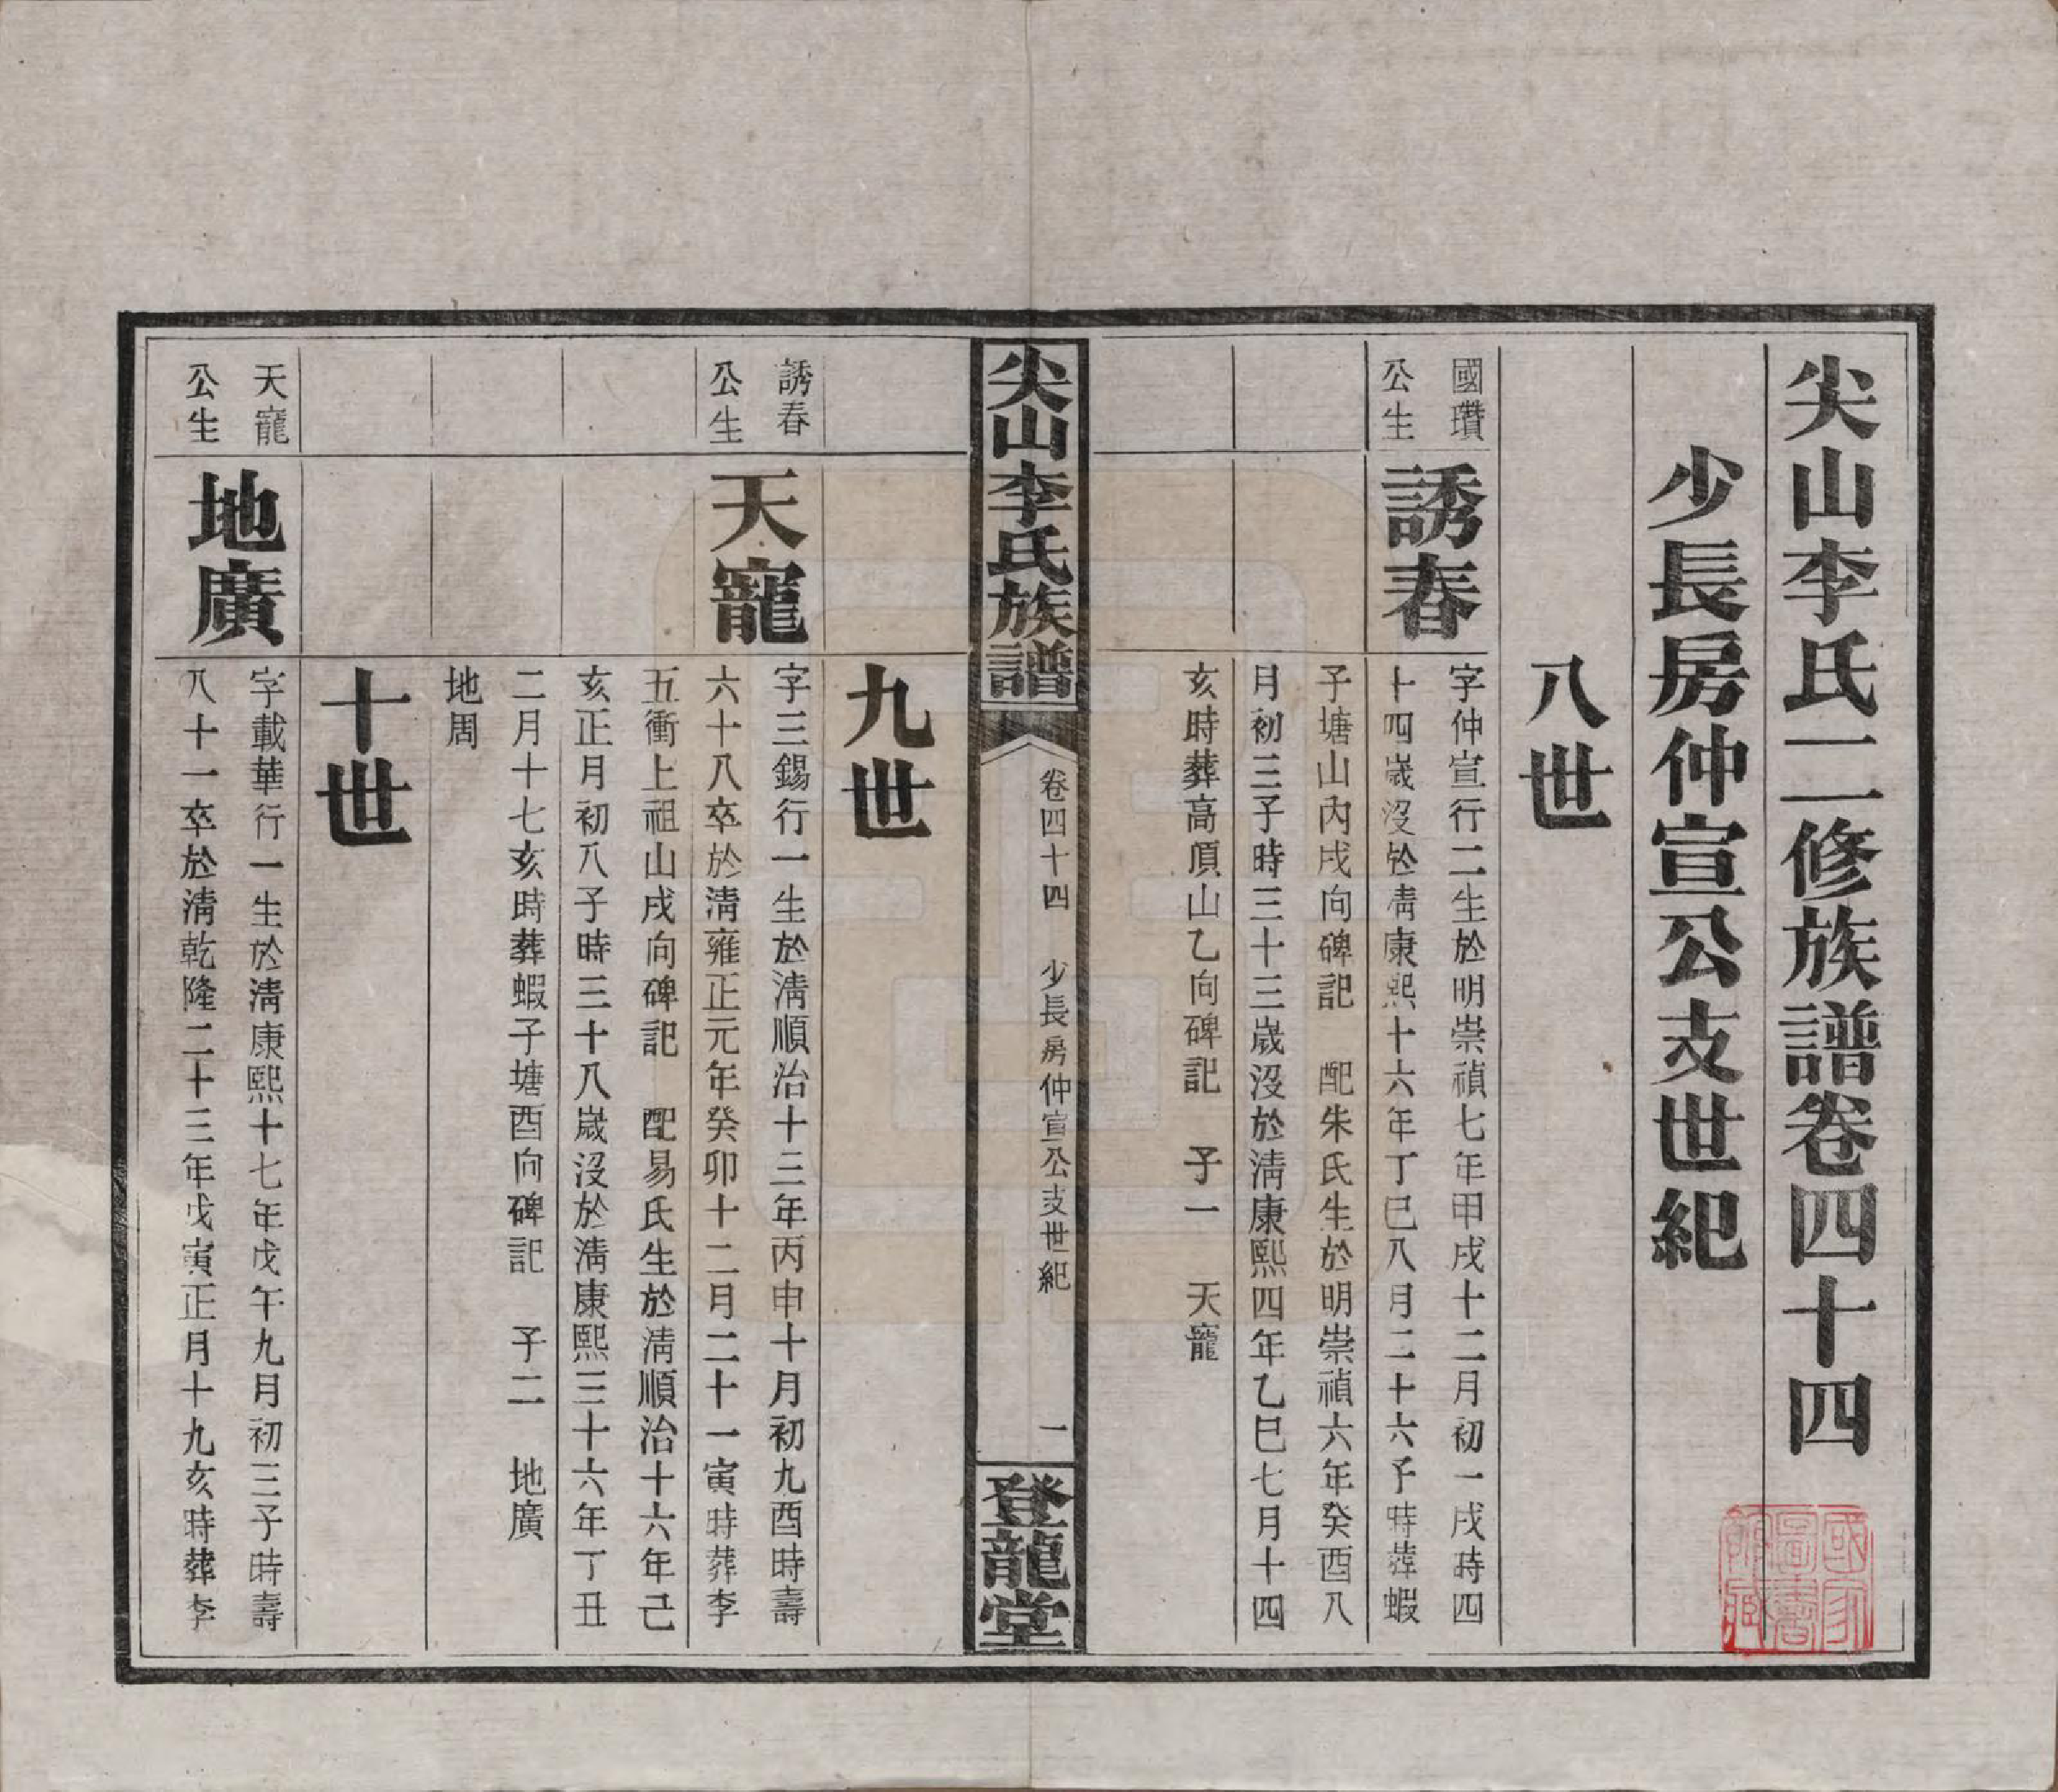 尖山李氏二修族譜卷四十四
少長房仲宣公支世紀
八世
國瓚
公生
誘春
字仲宣行二生於明崇禎七年甲戌十二月初一戌時四
十四歲沒於清康熙十六年丁巳八月二十六子時葬蝦
子塘山內戌向碑記　配朱氏生於明崇禎六年癸酉八
月初三子時三十三歲沒於清康熙四年乙巳七月十四
亥時葬高頂山乙向碑記　子一　天寵
尖山李氏族譜
卷四十四　少長房仲宣公支世紀
一
登龍堂
九世
誘春
公生
天寵
字三錫行一生於清順治十三年丙申十月初九酉時壽
六十八卒於清雍正元年癸卯十二月二十一寅時葬李
五衝上祖山戌向碑記　配易氏生於清順治十六年己
亥正月初八子時三十八歲沒於清康熙三十六年丁丑
二月十七亥時葬蝦子塘酉向碑記　子二　地廣
地周
十世
天寵
公生
地廣
字載華行一生於清康熙十七年戊午九月初三子時壽
八十一卒於清乾隆二十三年戊寅正月十九亥時葬李
國家圖書館藏